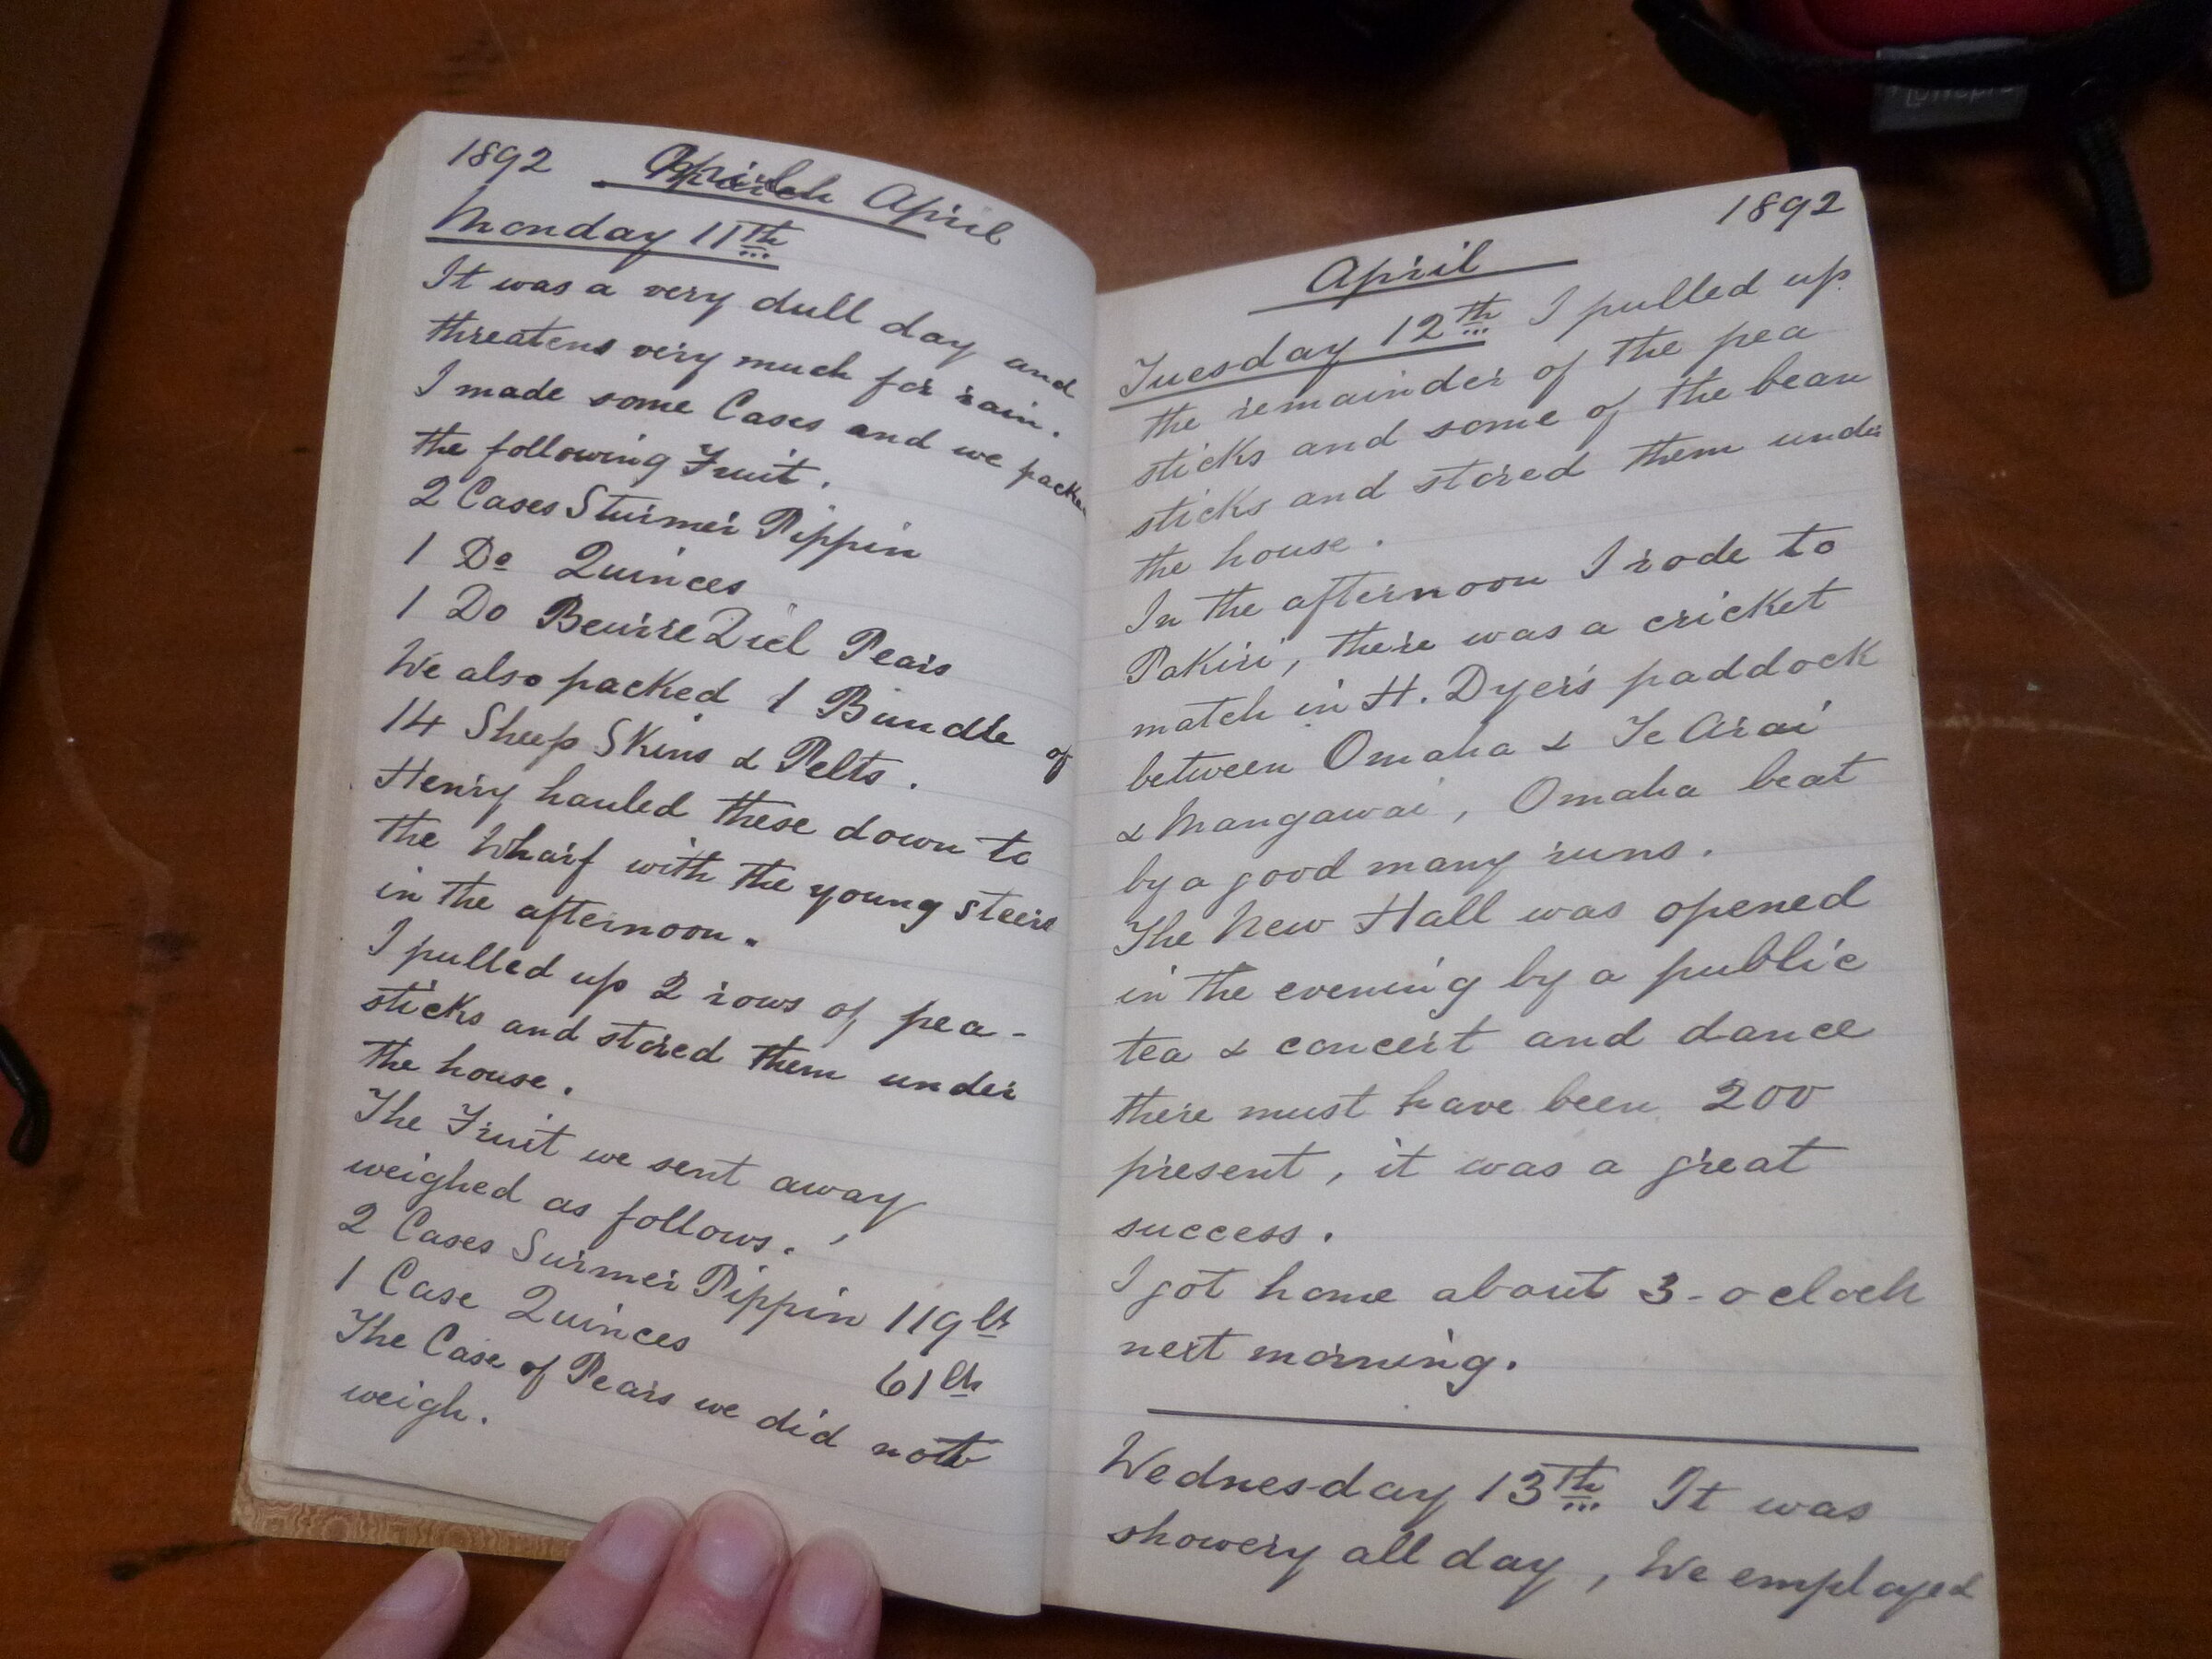 1892 April
Monday 11th
It was a very dull day and
threatens very much for rain.
I made some Cases and we packed
the following Fruit.
2 Cases Sturmer Pippin
1 Do Quinces
1 Do Beurre Diel Pears
We also packed 1 Bundle of
14 Sheep Skins & Pelts.
Henry hauled these down to
the Wharf with the young steers
in the afternoon.
I pulled up 2 rows of pea-
sticks and stored them under
the house.
The Fruit we sent away
weighed as follows.
2 Cases Surmer Pippin 119 lb
1 Case Quinces 61 lb
The Case of Pears we did not
weigh.
1892
April
Tuesday 12th I pulled up
the remainder of the pea
sticks and some of the bean
sticks and stored them under
the house.
In the afternoon I rode to
Pakiri, there was a cricket
match in H. Dyers paddock
between Omaha & Te Arai
& Mangawai, Omaha beat
by a good many runs.
The New Hall was opened
in the evening by a public
tea & concert and dance
there must have been 200
present, it was a great
success.
I got home about 3-oclock
next morning.
Wednesday 13th It was
showery all day, We employed